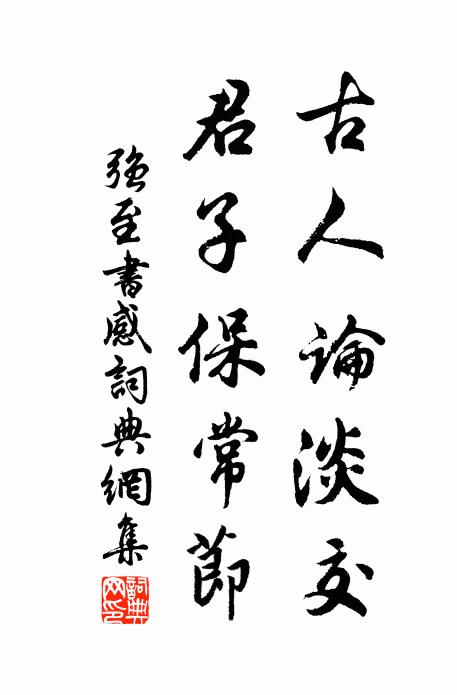 古人論淡交
君子保常節
強至書感詞典網集
詞典網印